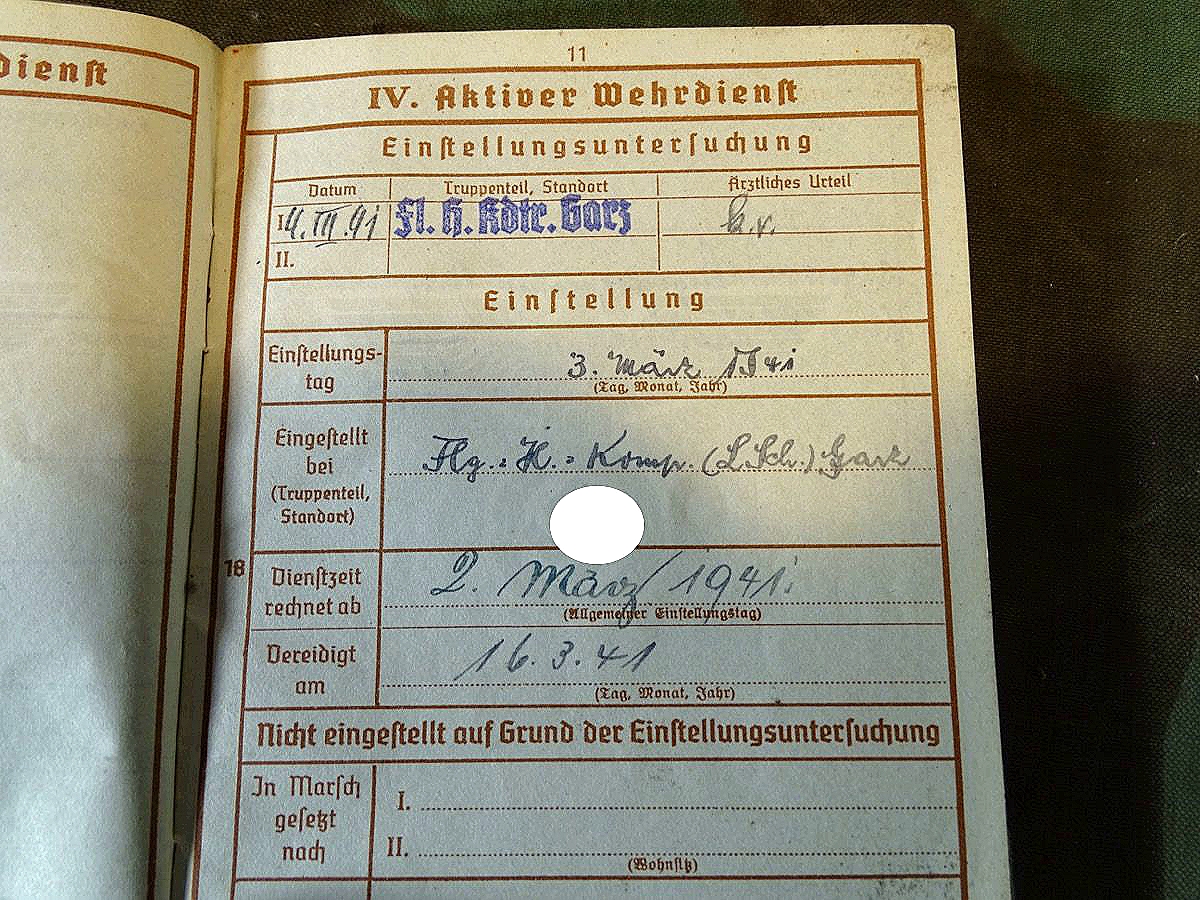 dienst
11
IV. Aktiver Wehrdienst
Einstellungsuntersuchung
Datum Truppenteil, Standort Ärztliches Urteil
I. 4. III. 41 Fl. H. Kdtr. Garz k.v.
II.
Einstellung
Einstellungs-
tag
3. März 1941
(Tag, Monat, Jahr)
Eingestellt
bei
(Truppenteil,
Standort)
Flg.-H.-Komp. (L.Sch.) Garz
18
Dienstzeit
rechnet ab
2. März 1941.
(Allgemeiner Einstellungstag)
Vereidigt
am
16.3.41
(Tag, Monat, Jahr)
Nicht eingestellt auf Grund der Einstellungsuntersuchung
In Marsch
gesetzt
nach
I.
II.
(Wohnsitz)